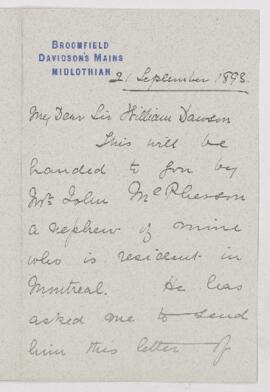 BROOMFIELD
DAVIDSON'S MAINS
MIDLOTHIAN.
21 September 1893.
My Dear Sir William Dawson
This will be
handed to you by
Mr. John McPherson
a nephew of mine
who is resident in
Montreal. He has
asked me to send
him this letter of